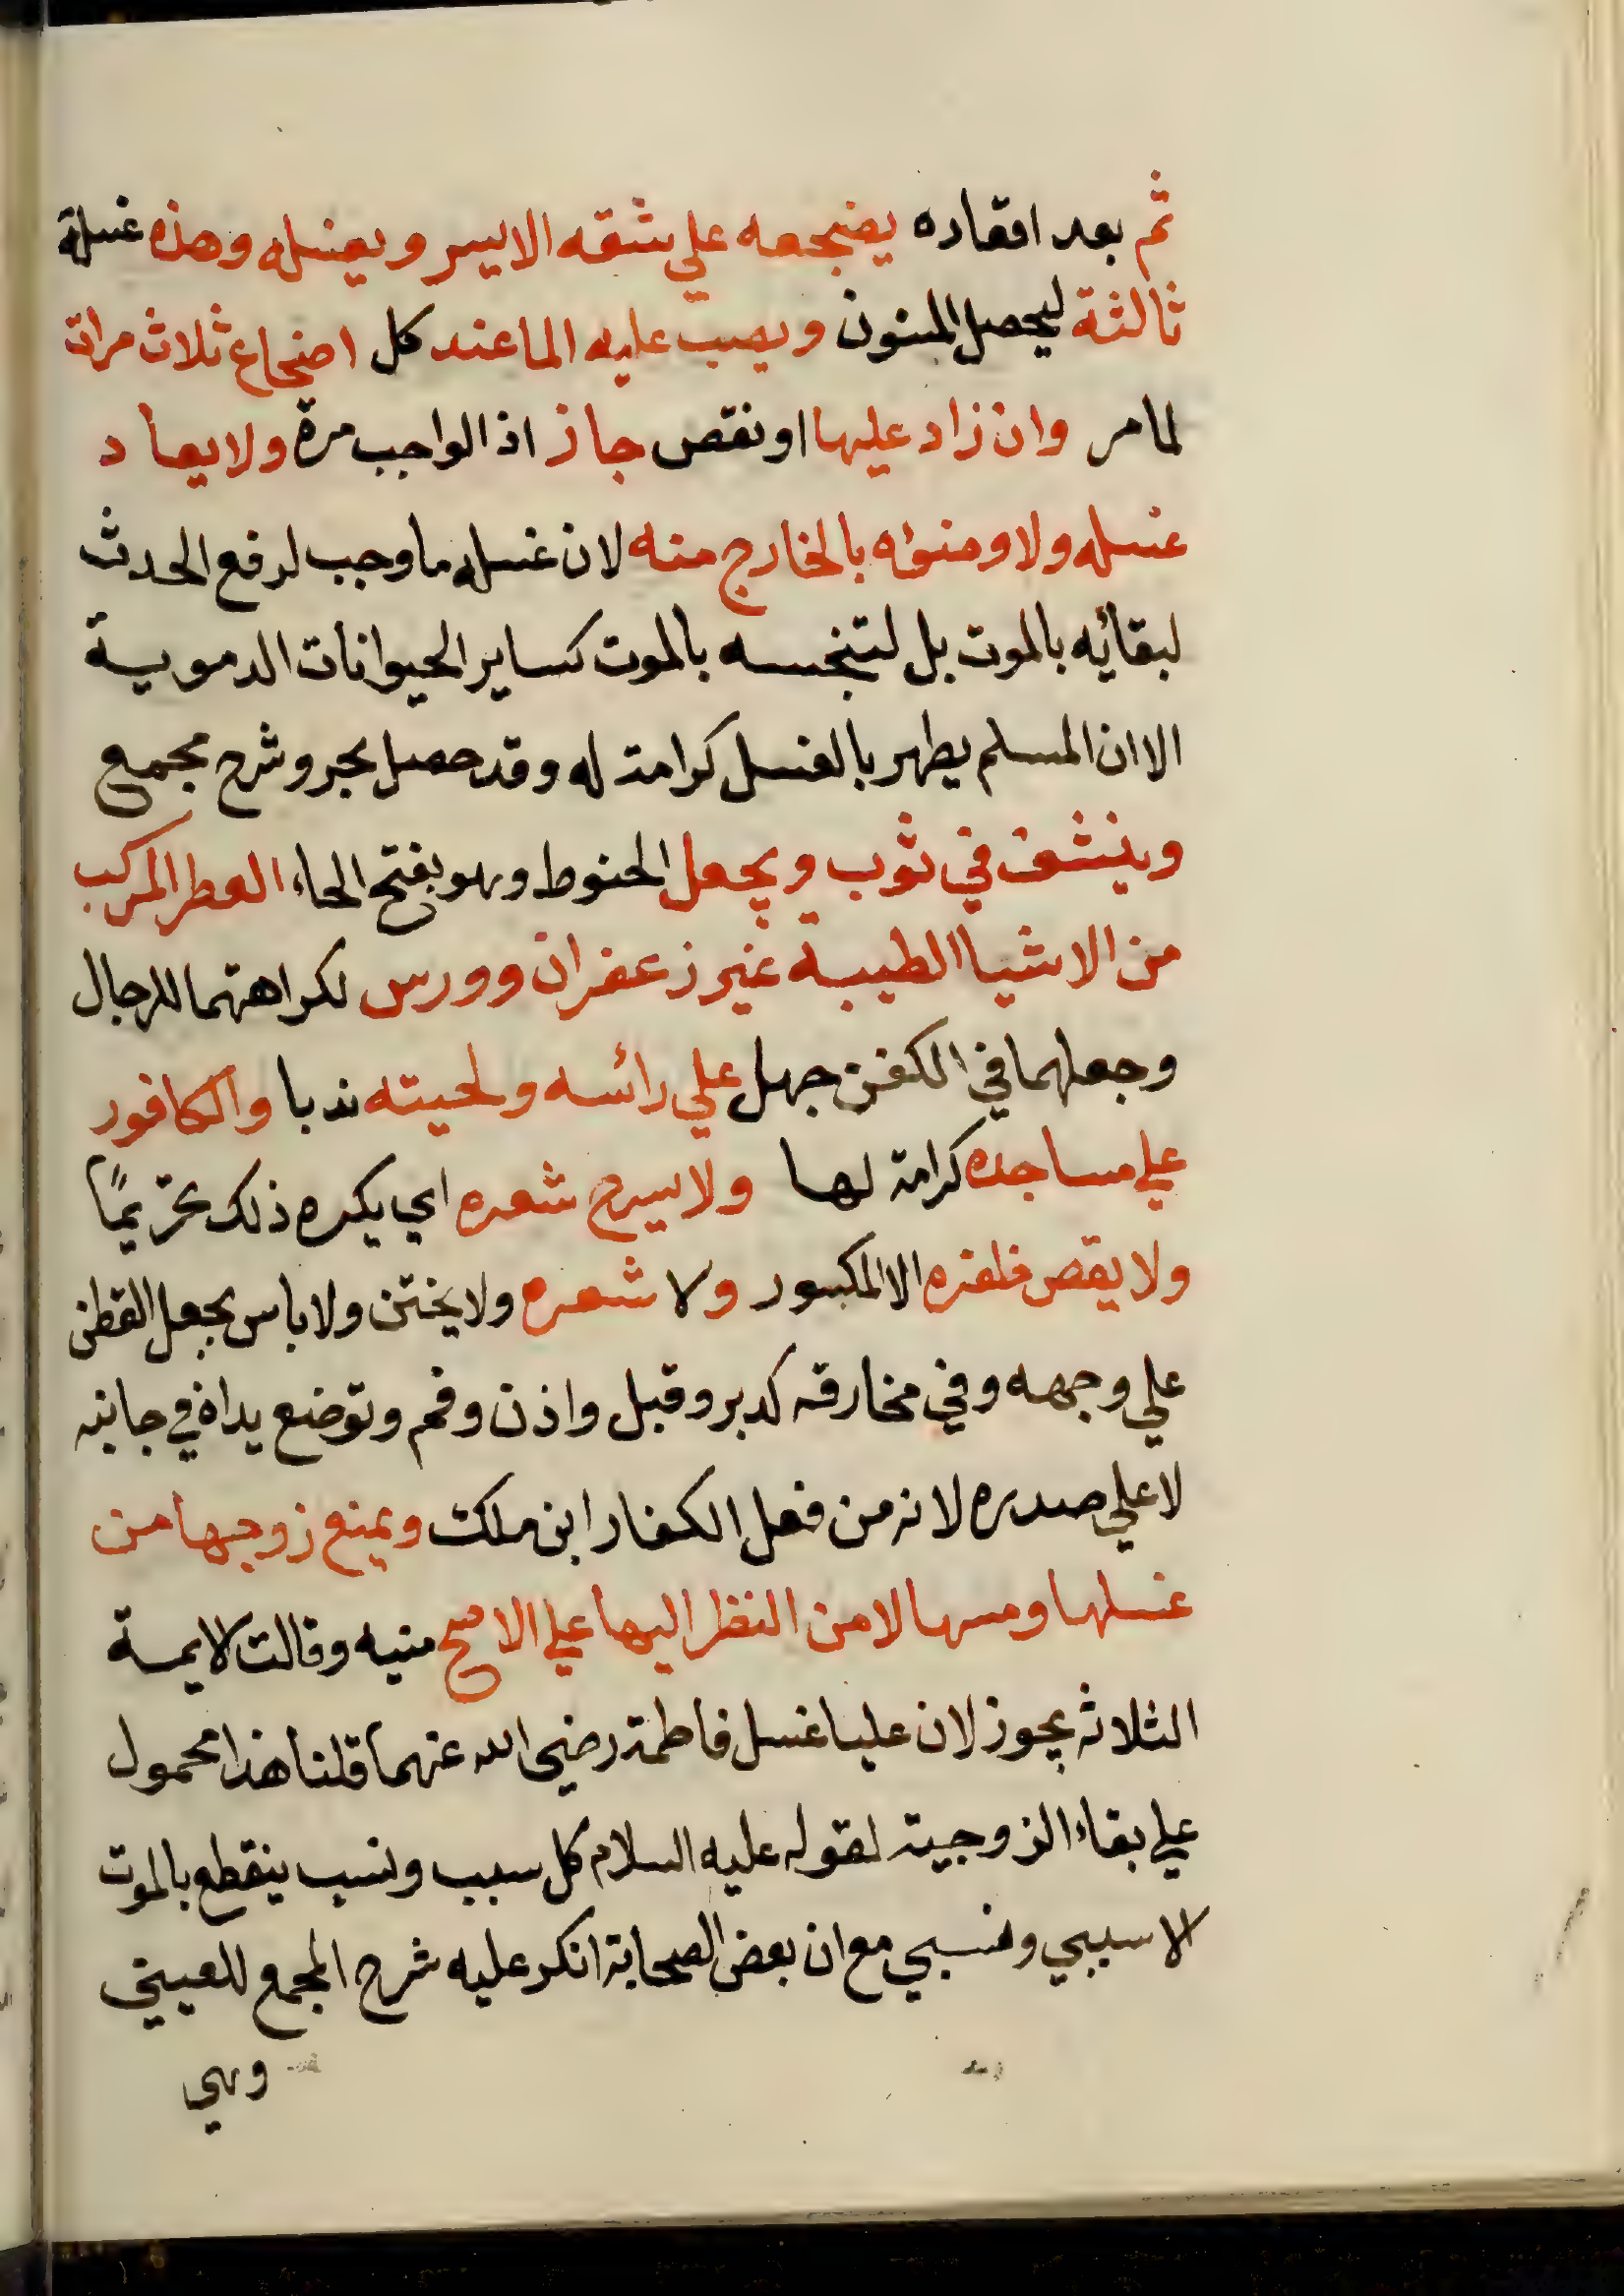 ثم بعد اقعاده يضجعه علي شقه الايسر ويغسله وهذه غسلة
ثالثة ليحصل المسنون ويصب عليه الما عند كل اضجاع ثلاث مرات
لما مر وان زاد عليها او نقص جاز اذ الواجب مرة ولا يعاد
غسله ولا وضوءه بالخارج منه لان غسله ما وجب لرفع الحدث
لبقائه بالموت بل لتنجسه بالموت كساير الحيوانات الدموية
الا ان المسلم يطهر بالغسل كرامة له وقد حصل بحر وشرح مجمع
وينشف في ثوب ويجعل الحنوط وهو بفتح الحاء العطر المركب
من الاشيا الطيبة غير زعفران وورس لكراهتهما للرجال
وجعلهما في الكفن جهل علي رائسه ولحيته ندبا والكافور
علي مساجده كرامة لها ولا يسرح شعره اي يكره ذلك تحريمًا
ولا يقص ظفره الا المكسور ولا شعره ولا يختن ولا باس بجعل القطن
علي وجهه وفي مخارقه كدبر وقبل واذن وفم وتوضع يداه في جانبه
لا علي صدره لانه من فعل الكفار ابن ملك ويمنع زوجها من
غسلها ومسها لا من النظر اليها علي الاصح منيه وقالت الايمة
الثلاثه يجوز لان عليا غسل فاطمة رضي الله عنهما قلنا هذا محمول
علي بقاء الزوجية لقوله عليه السلام كل سبب ونسب ينقطع بالموت
الا سببي ونسبي مع ان بعض الصحابة انكر عليه شرح المجمع للعيني
وهي